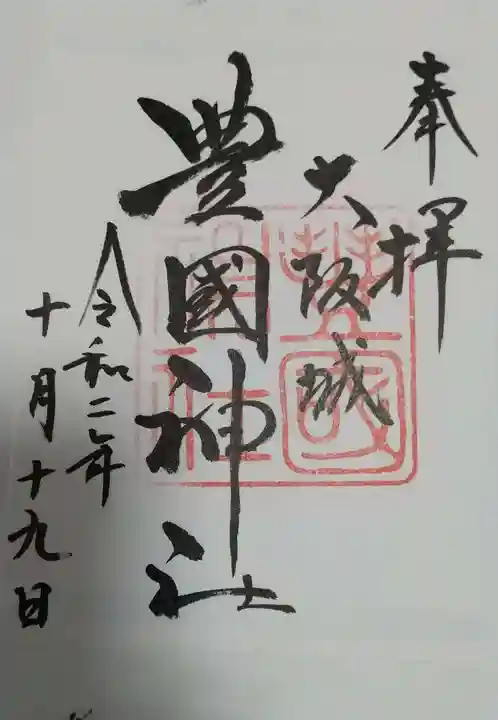 奉拝
大阪城
豊國神社
令和二年
十月十九日
豊國神社